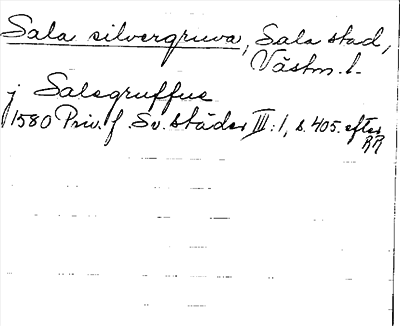 Sala silvergruva, Sala stad,
Västm. l.
j Salsgruffue
1580 Priv. f. Sv. städer III:1, s. 405. efter
RR